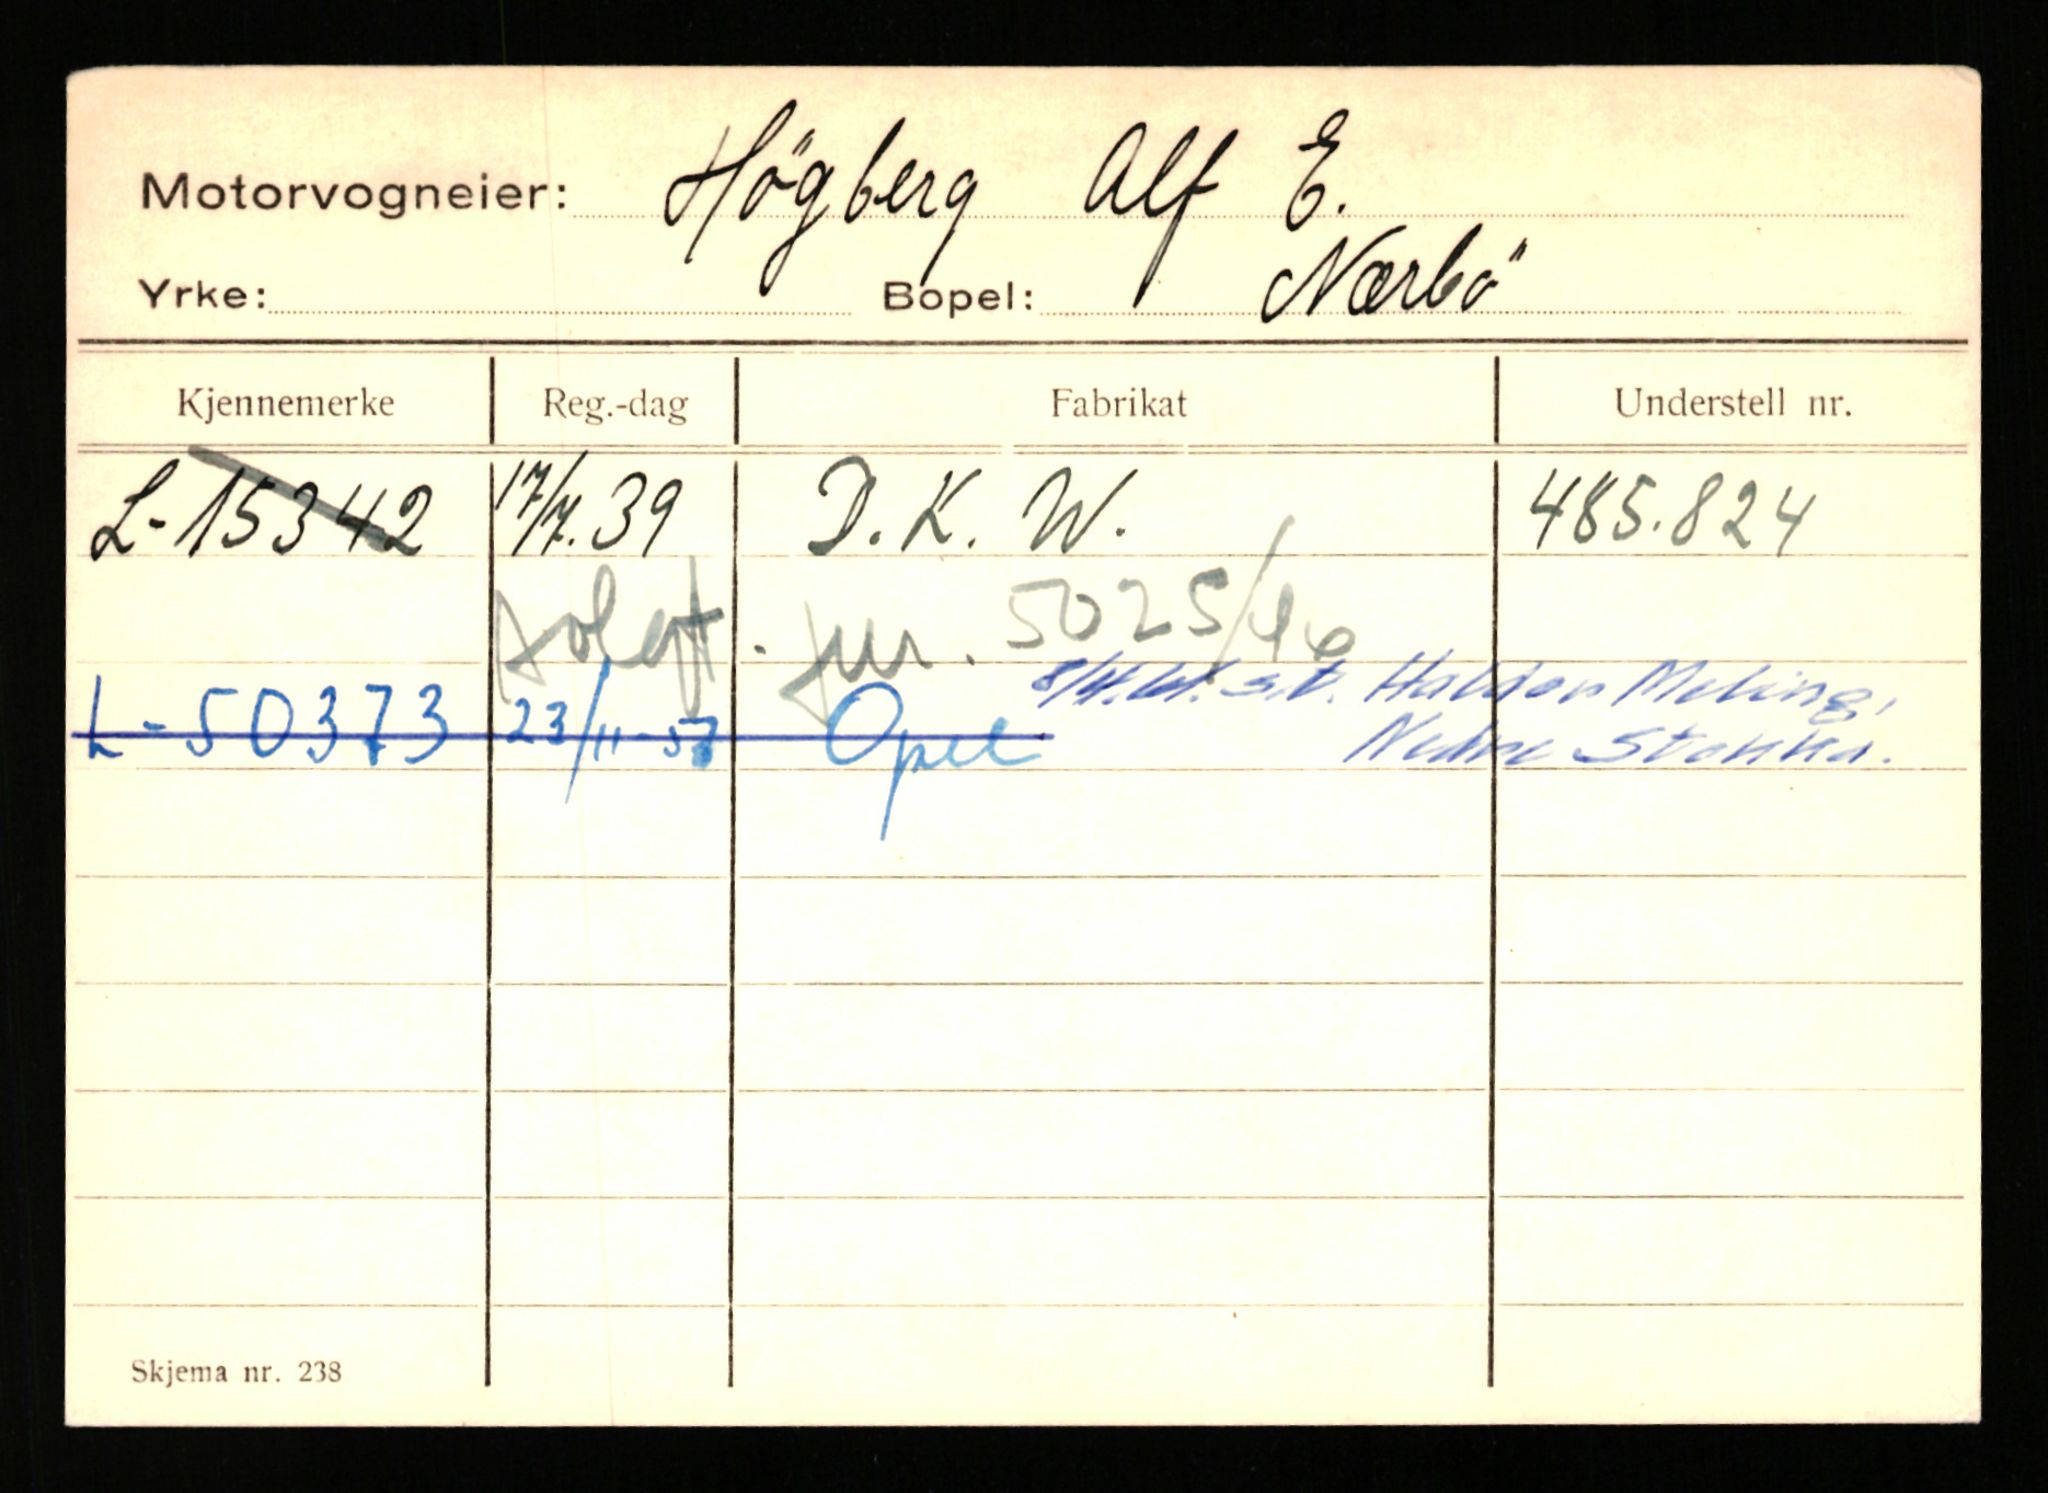 Motorvogneier: Högberg Alf E.
Yrke: Bopel: Nærbö
Kjennemerke Reg.-dag Fabrikat Understell nr.
L-15342 17/7.39 D.K.W. 485.824
Avlagt. jnr. 5025/46
L-50373 23/11-57 Opel 8/4.61. s.t. Haldor Meling,
Nedre Stokka.
Skjema nr. 238